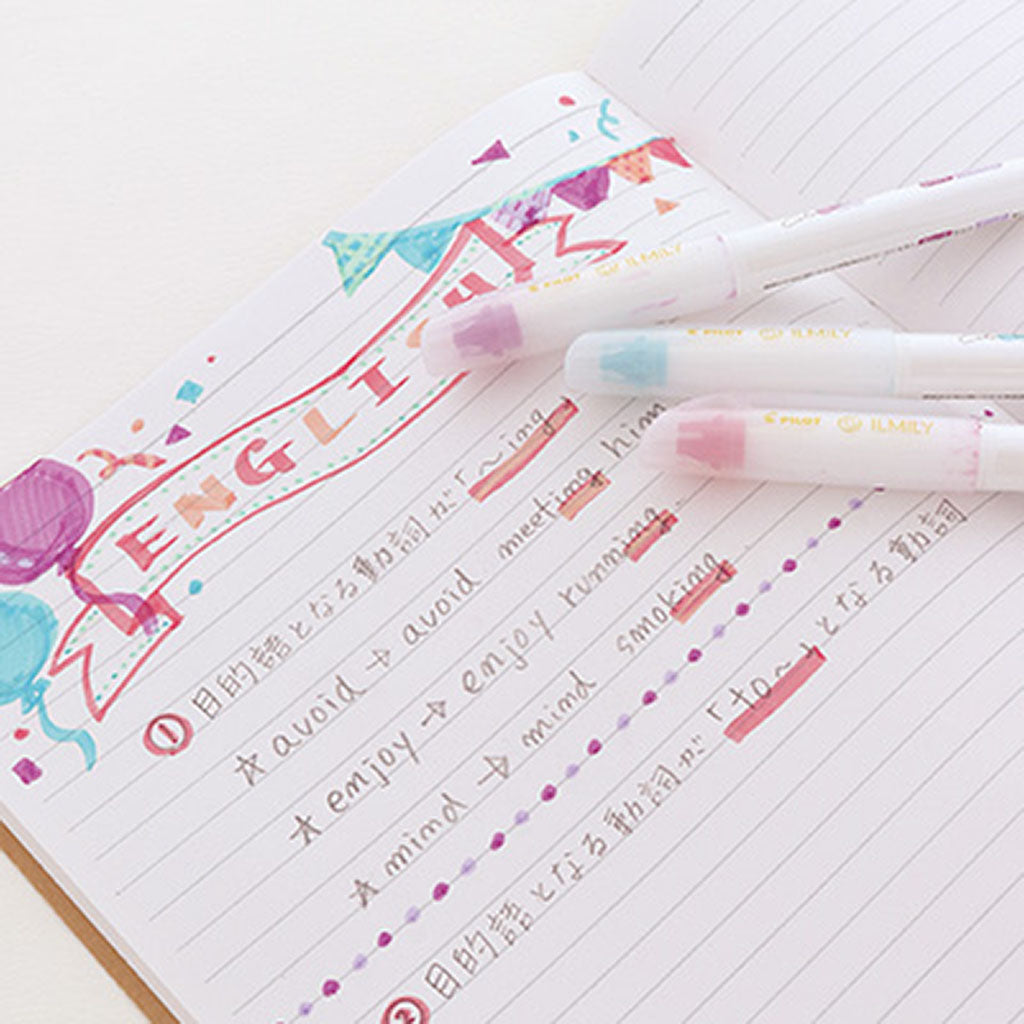 ENGLISH
① 目的語となる動詞が「～ing」
☆ avoid → avoid meeting him
☆ enjoy → enjoy running.
☆ mind → mind smoking.
② 目的語となる動詞が「to～」となる動詞
PILOT ILMILY
PILOT ILMILY
PILOT ILMILY